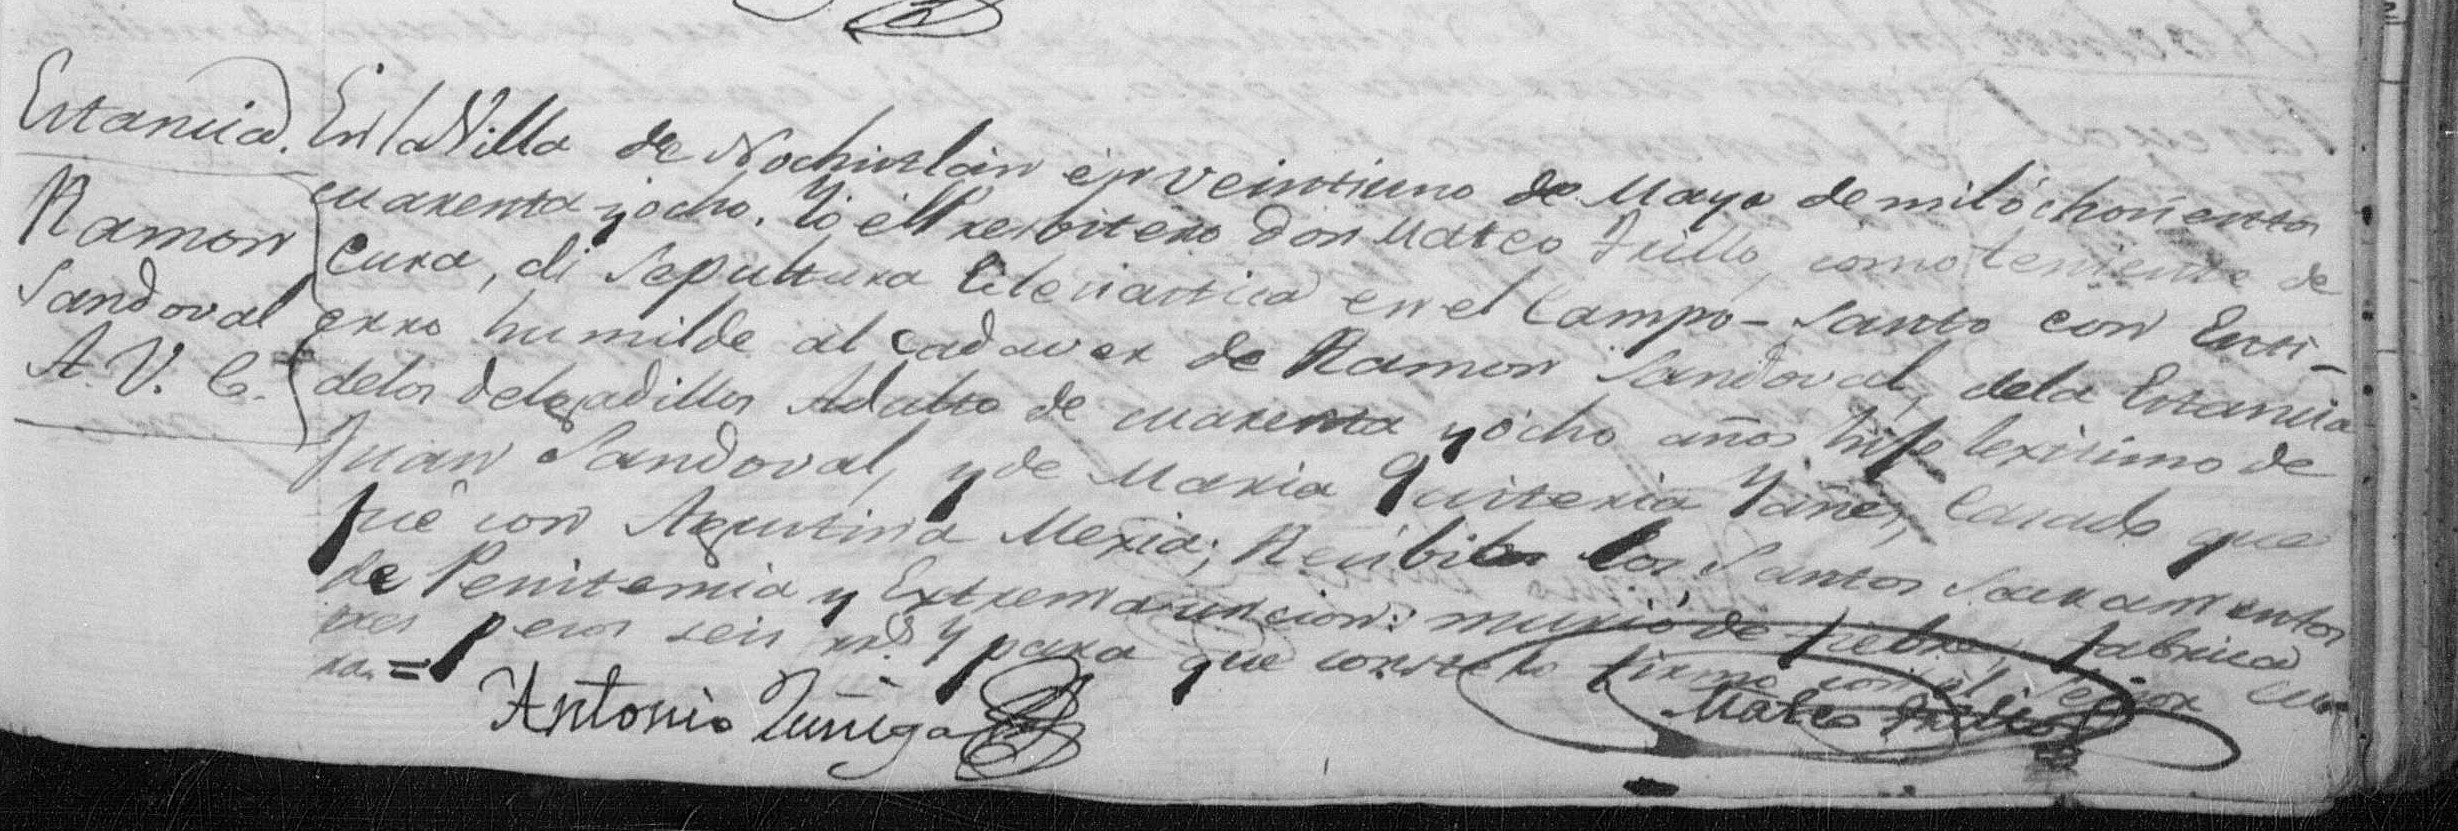 Estancia.
Ramon
Sandoval
A. V. C.
En la Villa de Nochistlán en veintiuno de Mayo de mil óchocientos
cuarenta y ocho. Yó él Presbitero Don Mateo Trillo, como teniente de
Cura, di Sepultura Eclesiastica en el Campo-santo con Enti-
erro humilde al cadaver de Ramon Sandoval, de la Estancia
de los Delgadillos Adulto de cuarenta y ócho años hijo lexitimo de
Juan Sandoval, y de Maria Quiteria Yañes, Casado que
fué con Agustina Mexia; Recibió los Santos Sacramentos
de Penitencia y Extremauncion: murió de fiebre, fabrica
tres pesos seis rrs. Y para que conste lo firmo con él Señor Cu-
ra. =
Antonio Zuñiga
Mateo Trillo